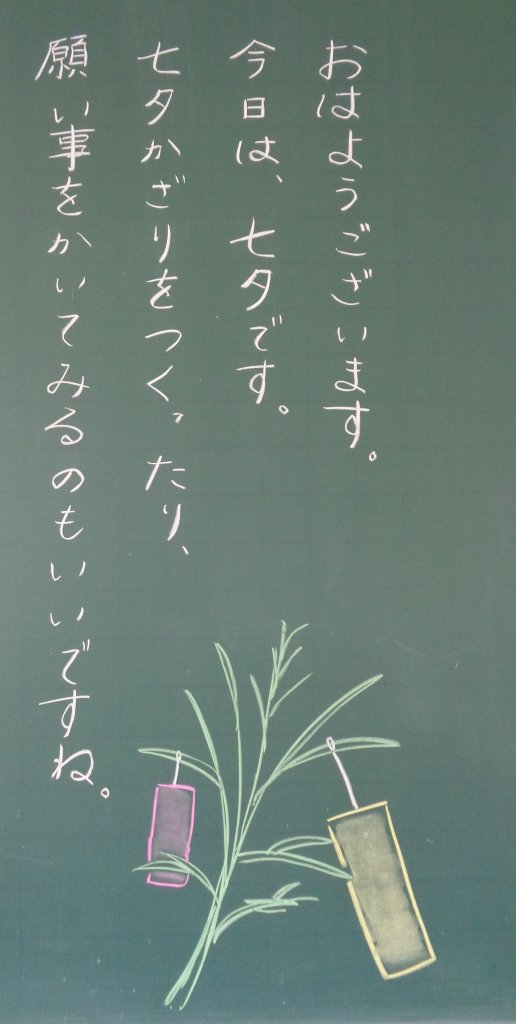 おはようございます。
今日は、七夕です。
七夕かざりをつくったり、
願い事をかいてみるのもいいですね。